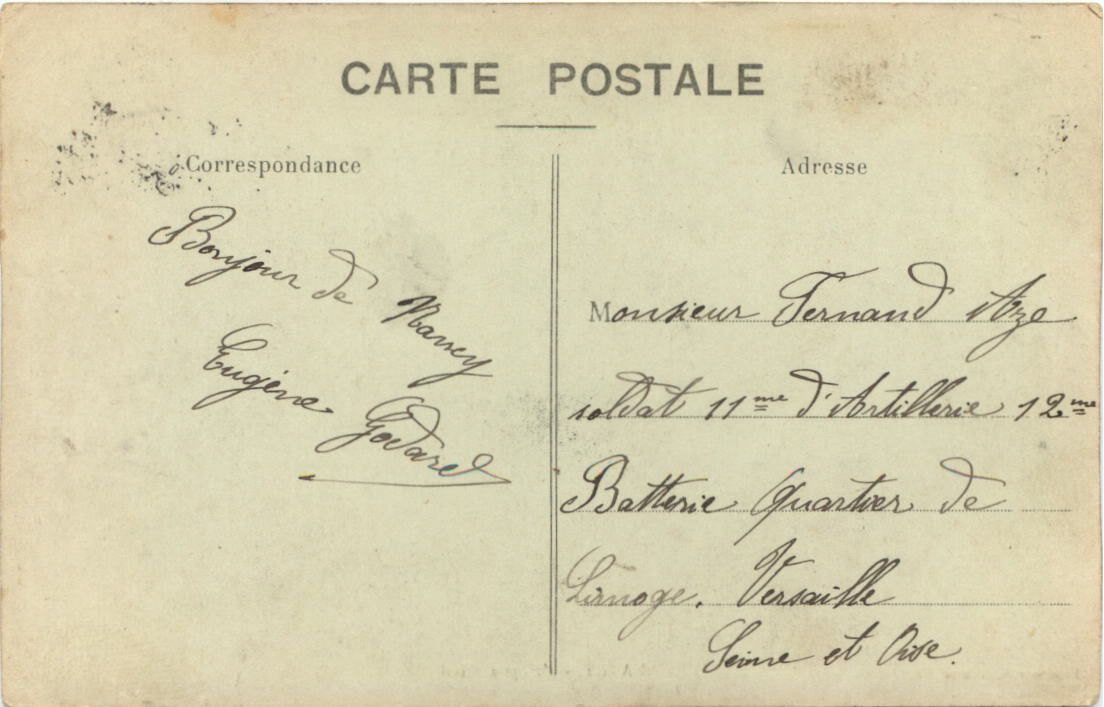 CARTE POSTALE
Correspondance
Bonjour de Nancy
Eugène Godard
Adresse
Monsieur Fernand Aze
soldat 11me d'Artillerie 12me
Batterie Quartier de
Limoge. Versaille
Seine et Oise.